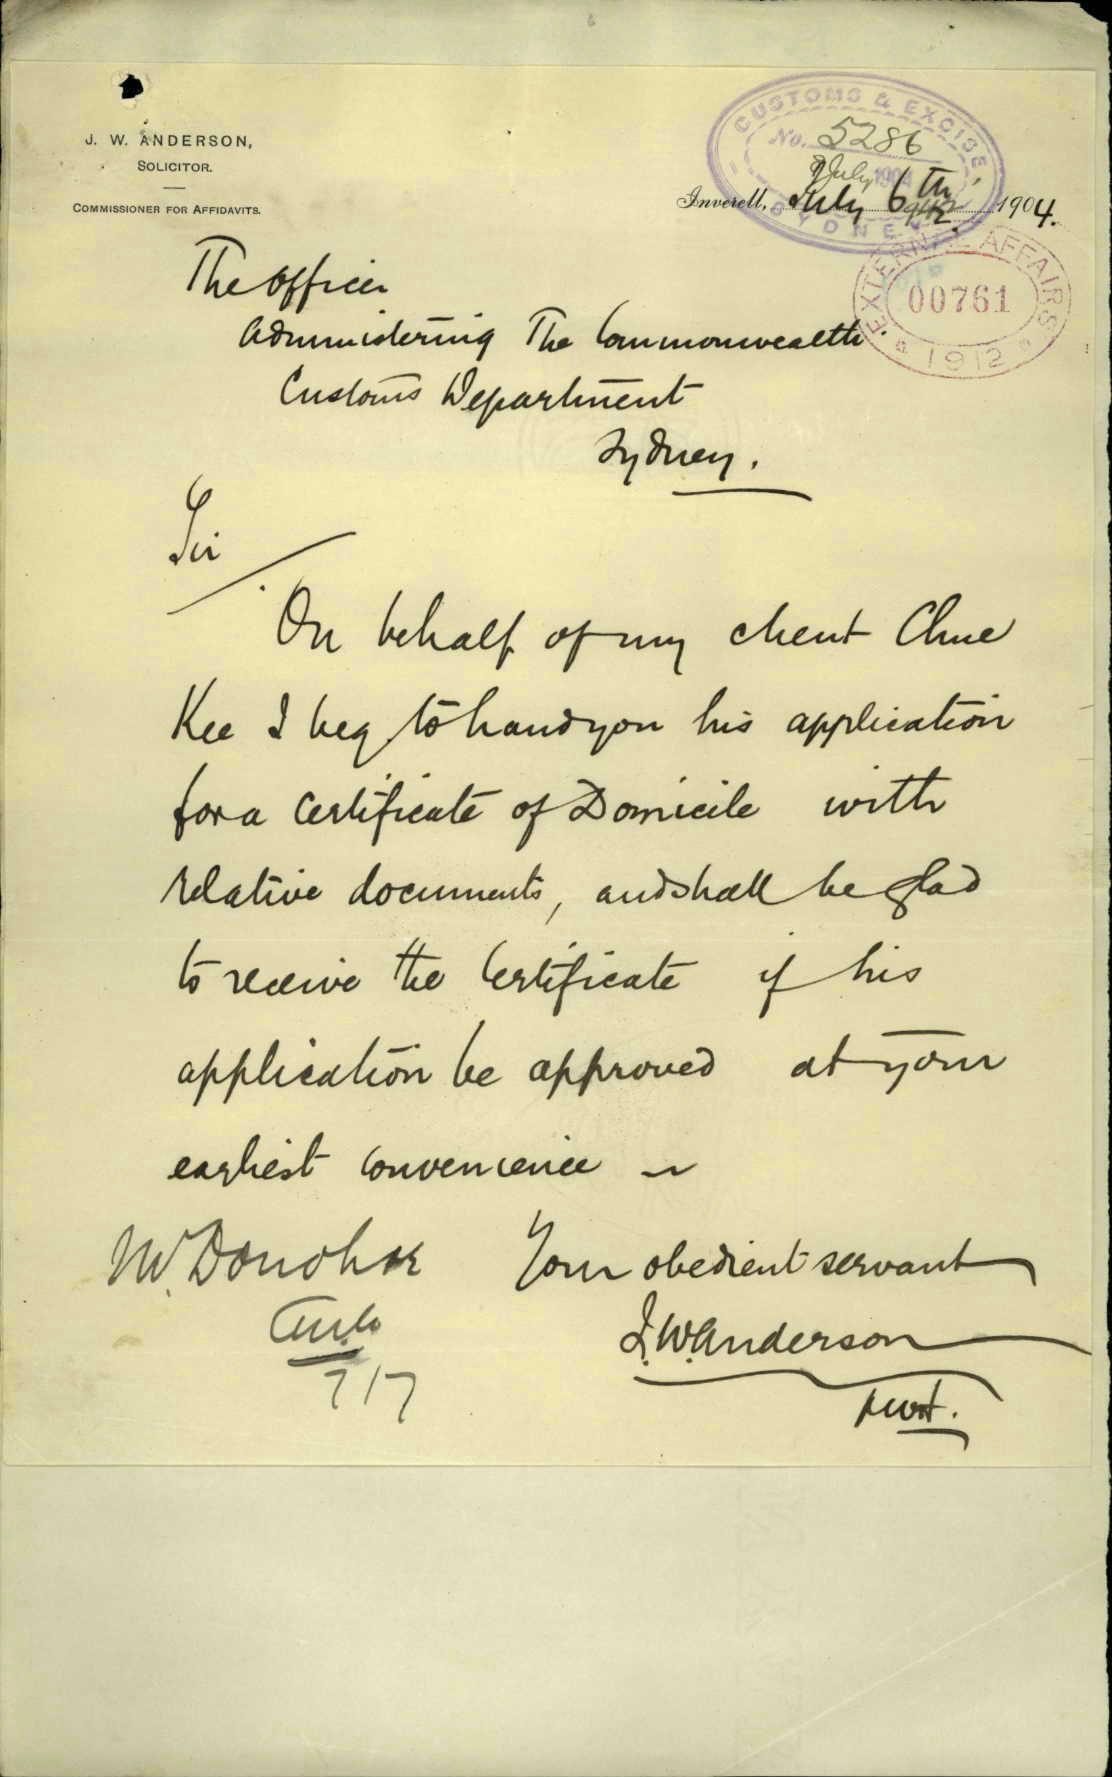 J. W. ANDERSON,
SOLICITOR.
COMMISSIONER FOR AFFIDAVITS.
CUSTOMS & EXCISE
No. 5286
July 1904
SYDNEY
Inverell, July 6th 1904.
EXTERNAL AFFAIRS
00761
1912
The Officer
Administering The Commonwealth
Customs Department
Sydney.
Sir
On behalf of my client Chue
Kee I beg to hand you his application
for a Certificate of Domicile with
relative documents, and shall be glad
to receive the Certificate if his
application be approved at your
earliest convenience
Mr Donohoe
7/7
Your obedient servant
J. W. Anderson